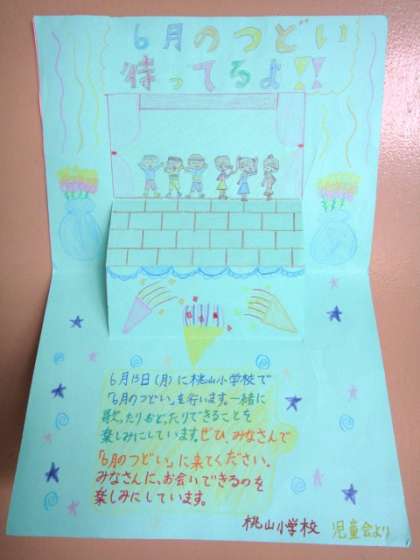 6月のつどい
待ってるよ!!
6月15日(月)に桃山小学校で
「6月のつどい」を行います。一緒に
歌ったりおどったりできることを
楽しみにしています。ぜひ、みなさんで
「6月のつどい」に来てください。
みなさんに、お会いできるのを
楽しみにしています。
桃山小学校 児童会より